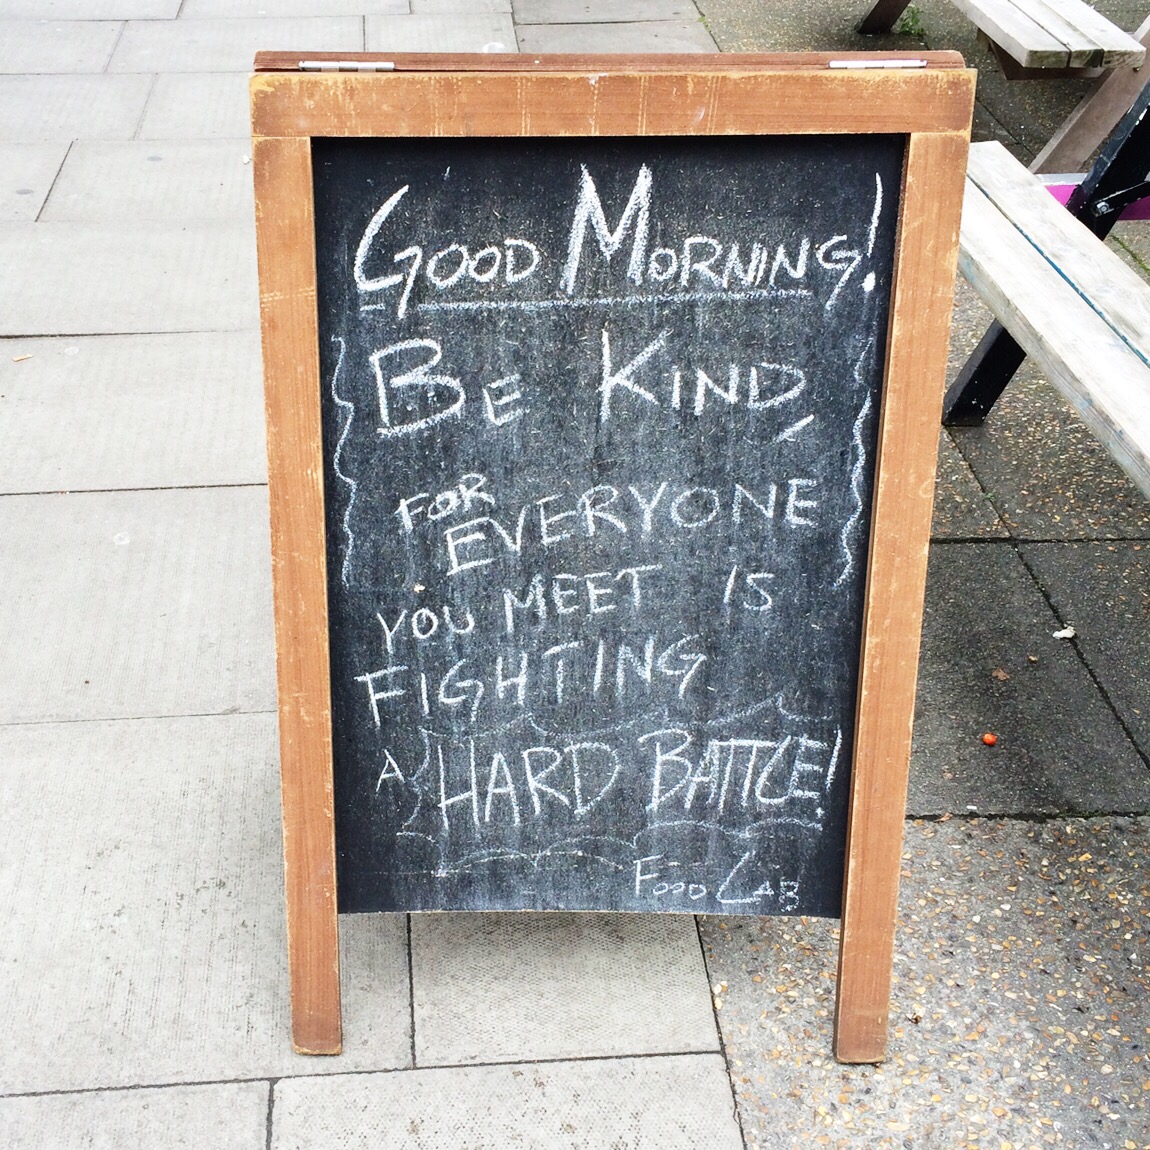 Good Morning!
Be Kind,
FOR
EVERYONE
YOU MEET IS
FIGHTING
A HARD BATTLE!
Food Lab